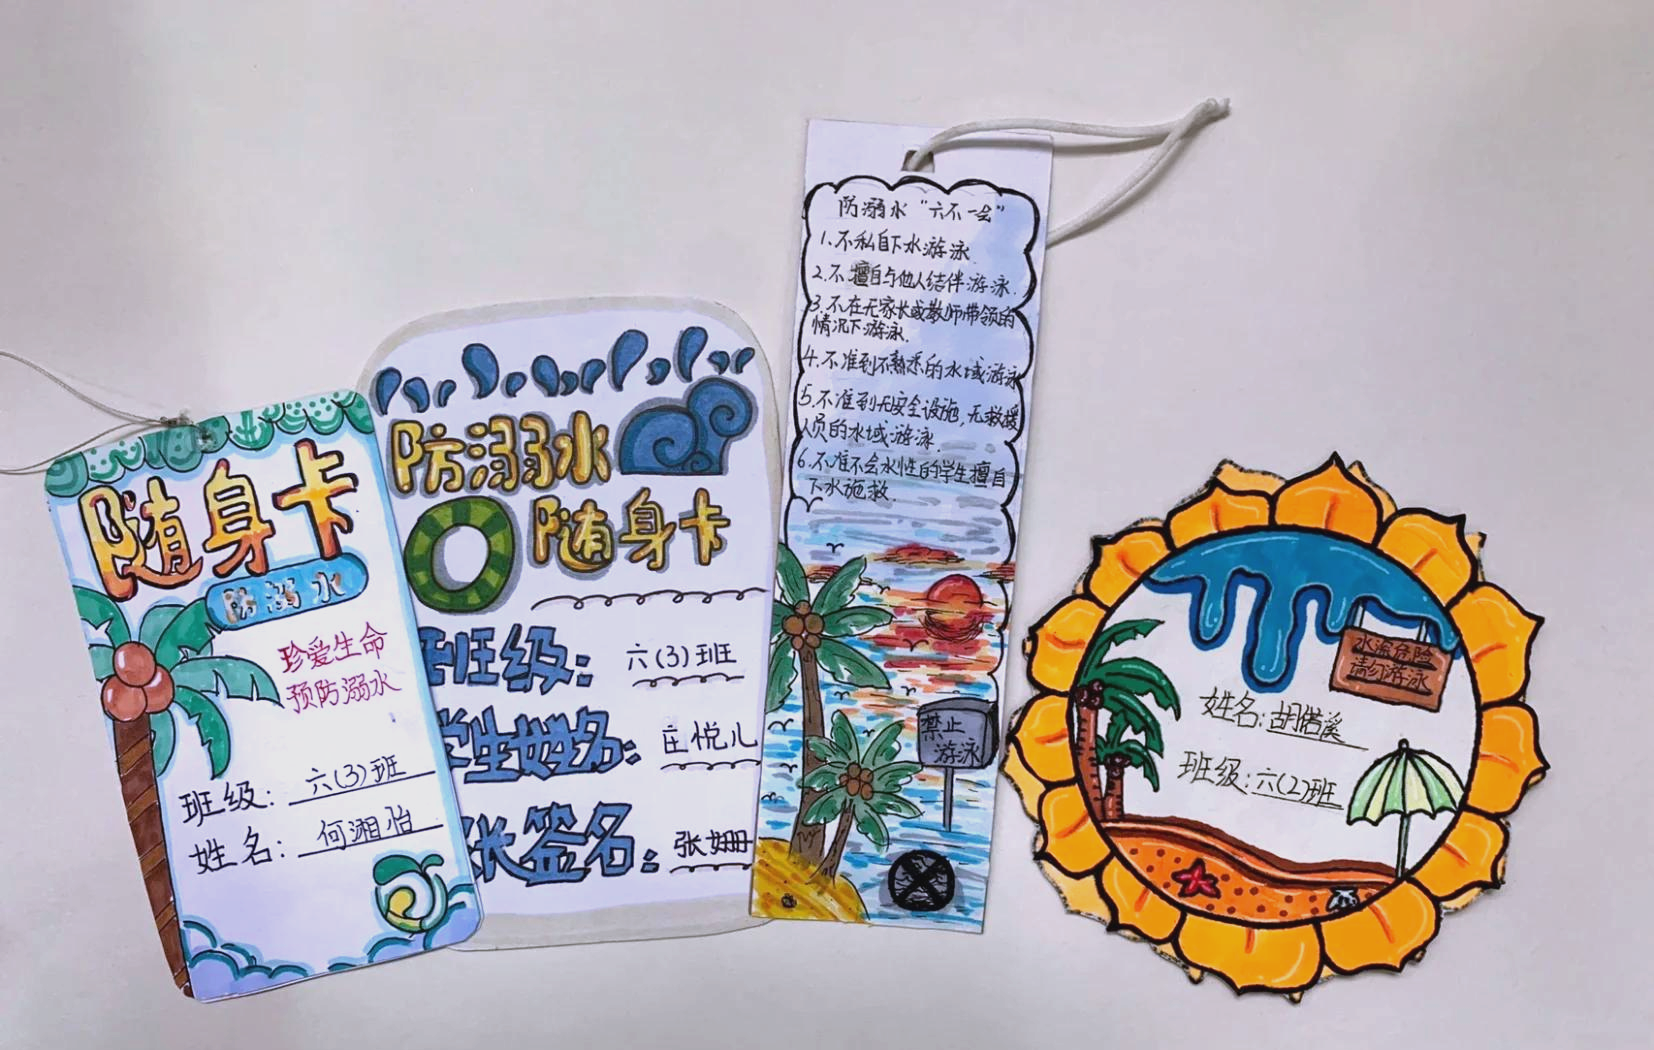 随身卡
防溺水
珍爱生命
预防溺水
班级: 六(3)班
姓名: 何湘怡
防溺水
随身卡
班级: 六(3)班
学生姓名: 庄悦儿
张签名: 张姗
防溺水“六不一会”
1.不私自下水游泳.
2.不擅自与他人结伴游泳.
3.不在无家长或教师带领的
情况下游泳.
4.不准到不熟悉的水域游泳
5.不准到无安全设施,无救援
人员的水域游泳.
6.不准不会水性的学生擅自
下水施救.
禁止
游泳
水流危险
请勿游泳
姓名:胡楷溪
班级:六(2)班